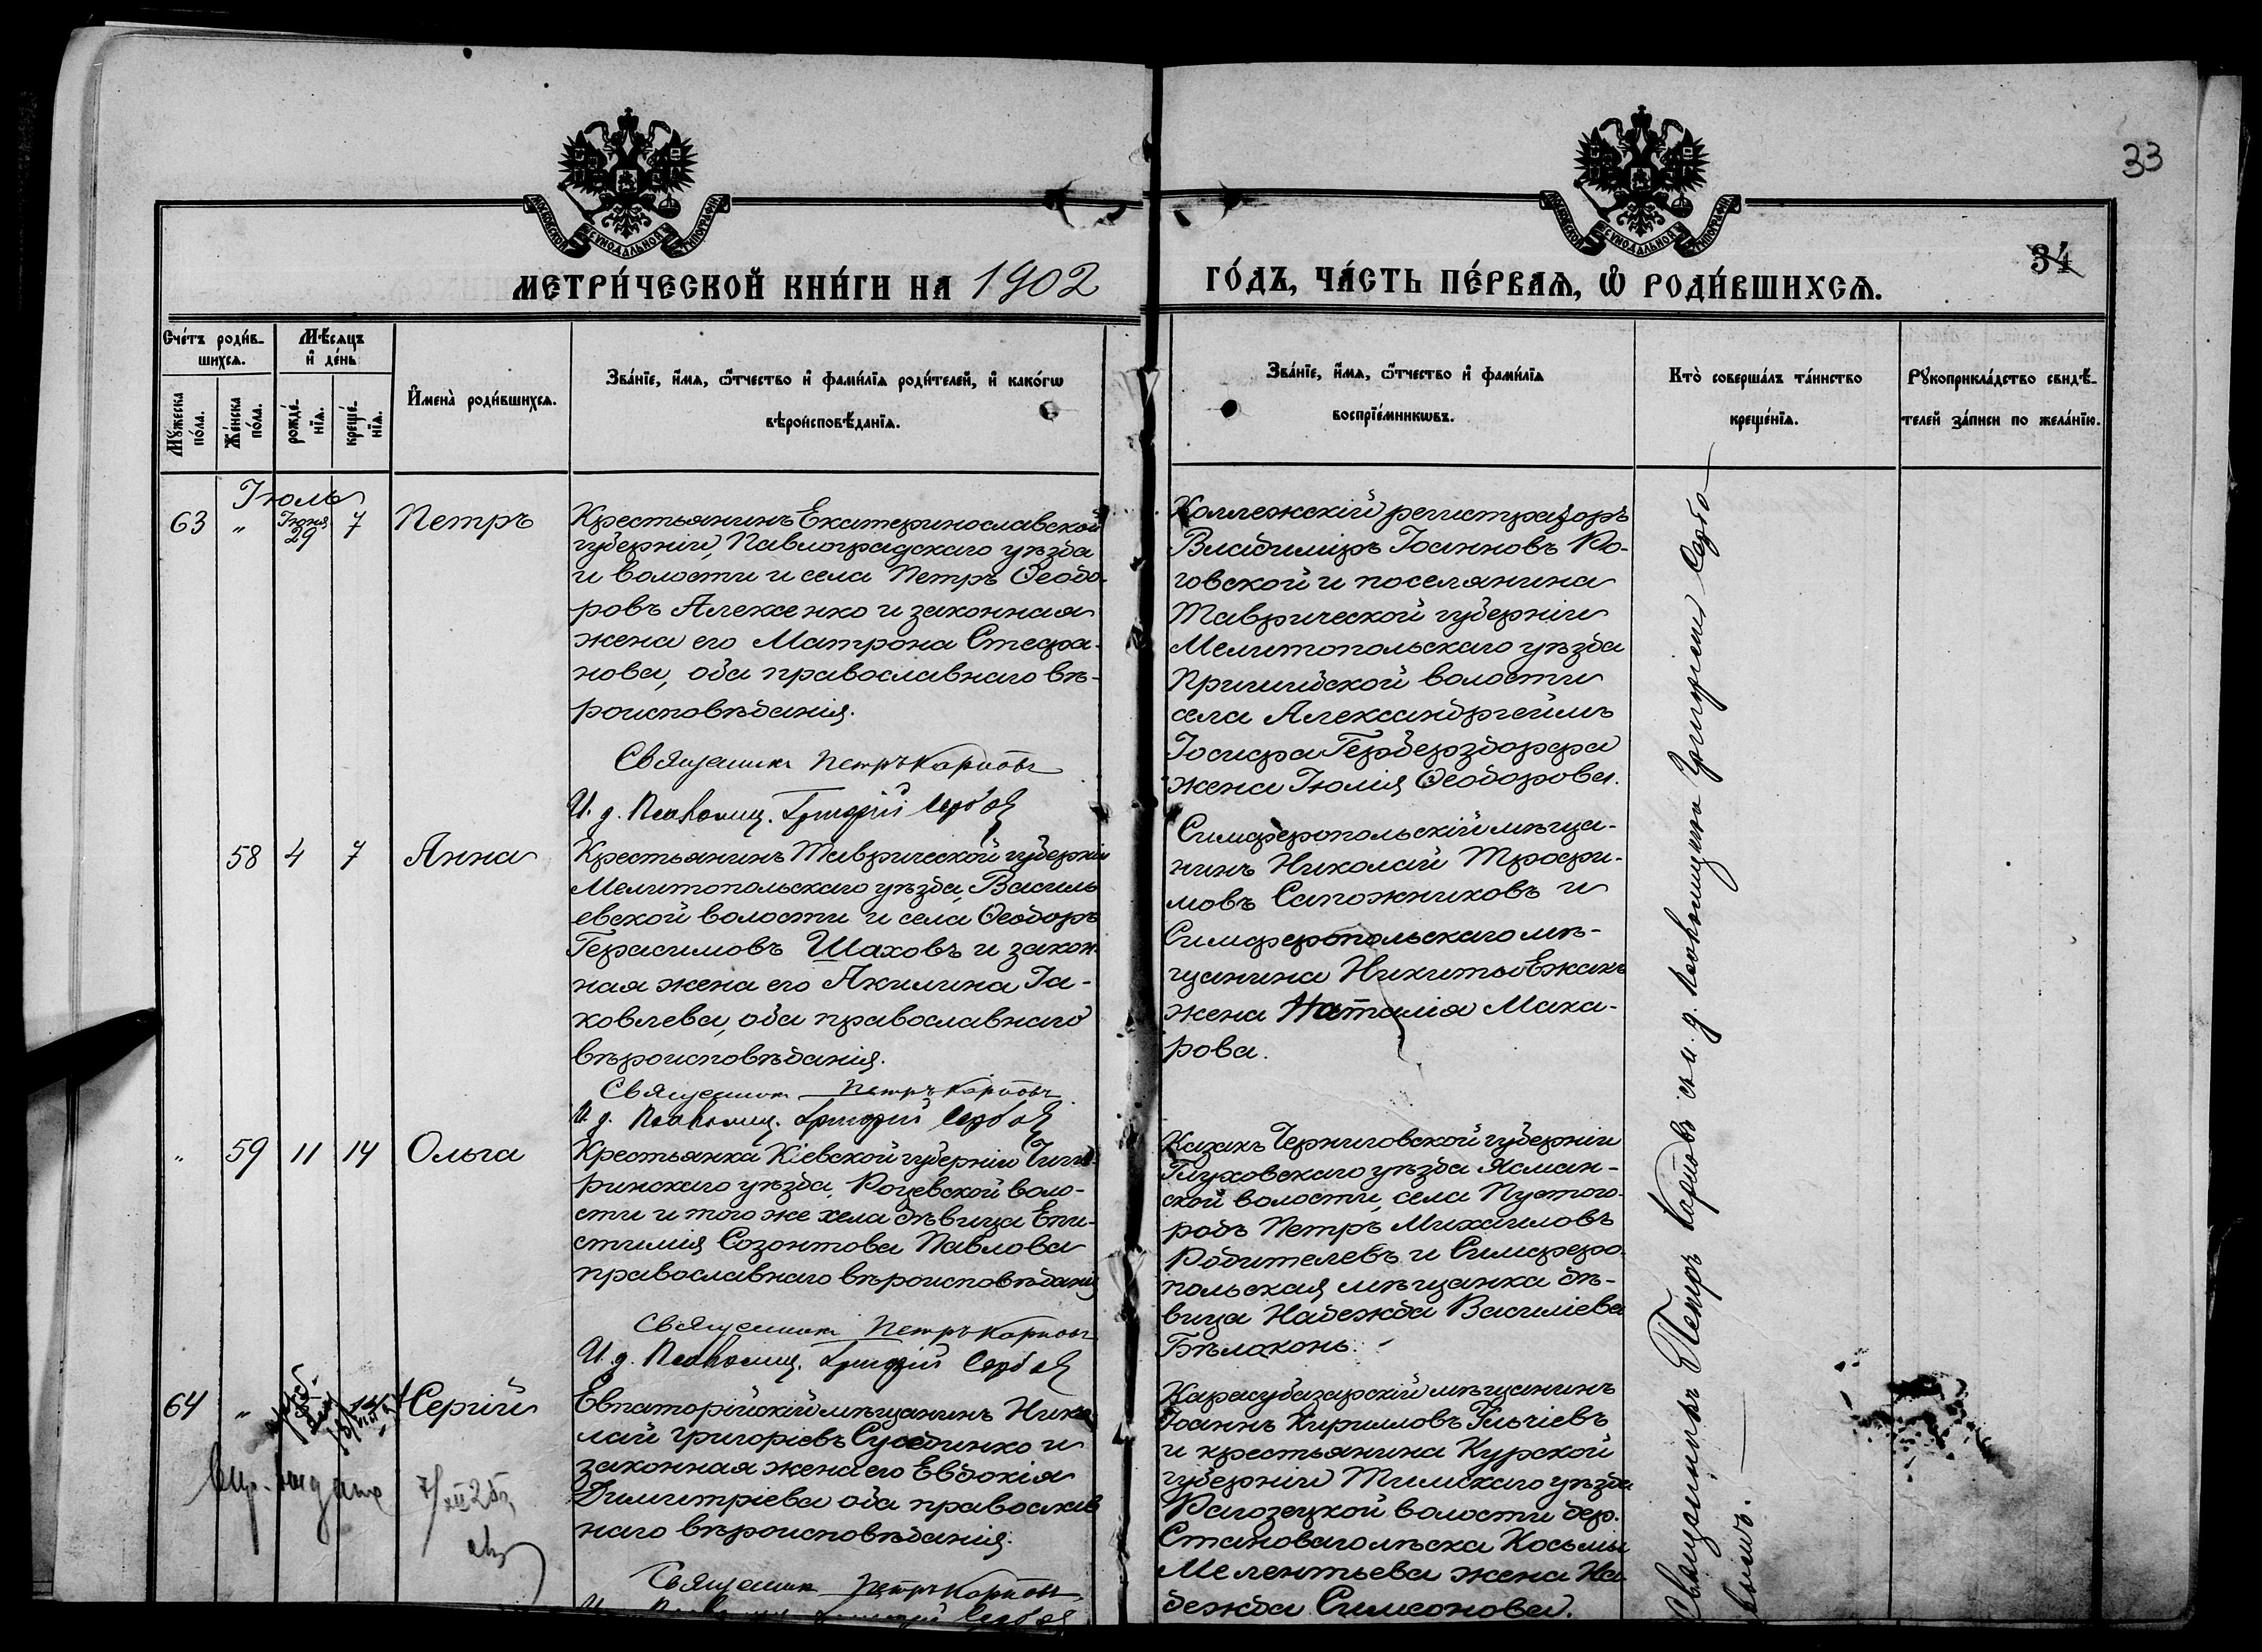 33
МОСКОВСКОЙ СУНОДАЛЬНОЙ ТИПОГРАФІИ
МОСКОВСКОЙ СУНОДАЛЬНОЙ ТИПОГРАФІИ
34
МЕТРИ́ЧЕСКОЙ КНИ́ГИ НА 1902
ГО́ДЪ, ЧА́СТЬ ПЕ́РВАѦ, Ѡ҆ РОДИ́ВШИХСѦ.
Сче́тъ роди́в-
шихсѧ.
Мѣ́сѧцъ
и҆ де́нь
Мꙋ́жеска
по́ла.
Же́нска
по́ла.
рожде́-
нїѧ.
креще́-
нїѧ.
И҆мена̀ роди́вшихсѧ.
Зва́нїе, и҆́мѧ, ѻ҆́тчество и҆ фами́лїѧ роди́телей, и҆ како́гѡ
вѣроисповѣ́данїѧ.
Зва́нїе, и҆́мѧ, ѻ҆́тчество и҆ фами́лїѧ
воспрїе́мникѡвъ.
Кто̀ соверша́лъ та́инство
креще́нїѧ.
Рꙋкоприкла́дство свидѣ́-
телей за́писи по жела́нїю.
Іюль
63 " Іюня 29 7 Петръ
Крестьянинъ Екатеринославской
губерніи, Павлоградскаго уѣзда
и волости и села Петръ Ѳеодо-
ровъ Алексенко и законная
жена его Матрона Стефа-
нова, оба православнаго вѣ-
роисповѣданія.
Священникъ Петръ Карповъ
И. д. Псаломщ. Григорій Сербовъ
Коллежскій регистраторъ
Владиміръ Іоанновъ Ро-
говской и поселянина
Таврической губерніи
Мелитопольскаго уѣзда
Пришибской волости
села Александргеймъ
Іосифа Гербердорфа
жена Юлія Ѳеодорова.
58 4 7 Анна
Крестьянинъ Таврической губерніи
Мелитопольскаго уѣзда, Василь
евской волости и села Ѳеодоръ
Герасимовъ Шаховъ и закон-
ная жена его Акилина Іа-
ковлева, оба православнаго
вѣроисповѣданія.
Священникъ Петръ Карповъ
И. д. Псаломщ. Григорій Сербовъ
Симферопольскій мѣща-
нинъ Николай Трофи-
мовъ Сапожниковъ и
Симферопольскаго мѣ-
щанина Никиты Ежакъ
жена Наталія Мака-
рова.
" 59 11 14 Ольга
Крестьянка Кіевской губерніи Чиги-
ринскаго уѣзда, волο-
сти и того же села дѣвица Епи-
стимія Созонтова Павлова
православнаго вѣроисповѣданія
Священникъ Петръ Карповъ
И. д. Псаломщ. Григорій Сербовъ
Казакъ Черниговской губерніи
Глуховскаго уѣзда Ясман-
ской волости, села Пустого-
родъ Петръ Михаиловъ
Родителевъ и Симферо-
польская мѣщанка дѣ-
вица Надежда Василіева
Бѣлоконь.
64 " 14 Сергій
Евпаторійскій мѣщанинъ Нико
лай Григоріевъ и
законная жена его Евдокія
Димитріева оба православ
наго вѣроисповѣданія.
Священникъ Петръ Карповъ
Карасубазарскій мѣщанинъ
Іоаннъ Кирилловъ Ильчіевъ
и крестьянина Курской
губерніи Тимскаго уѣзда
волости дер.
Становаго лѣска Косьмы
Мелентьева жена На-
дежда Симеонова.
Священникъ Петръ Карповъ съ и. д. псаломщика Григоріемъ Сербо-
вымъ.